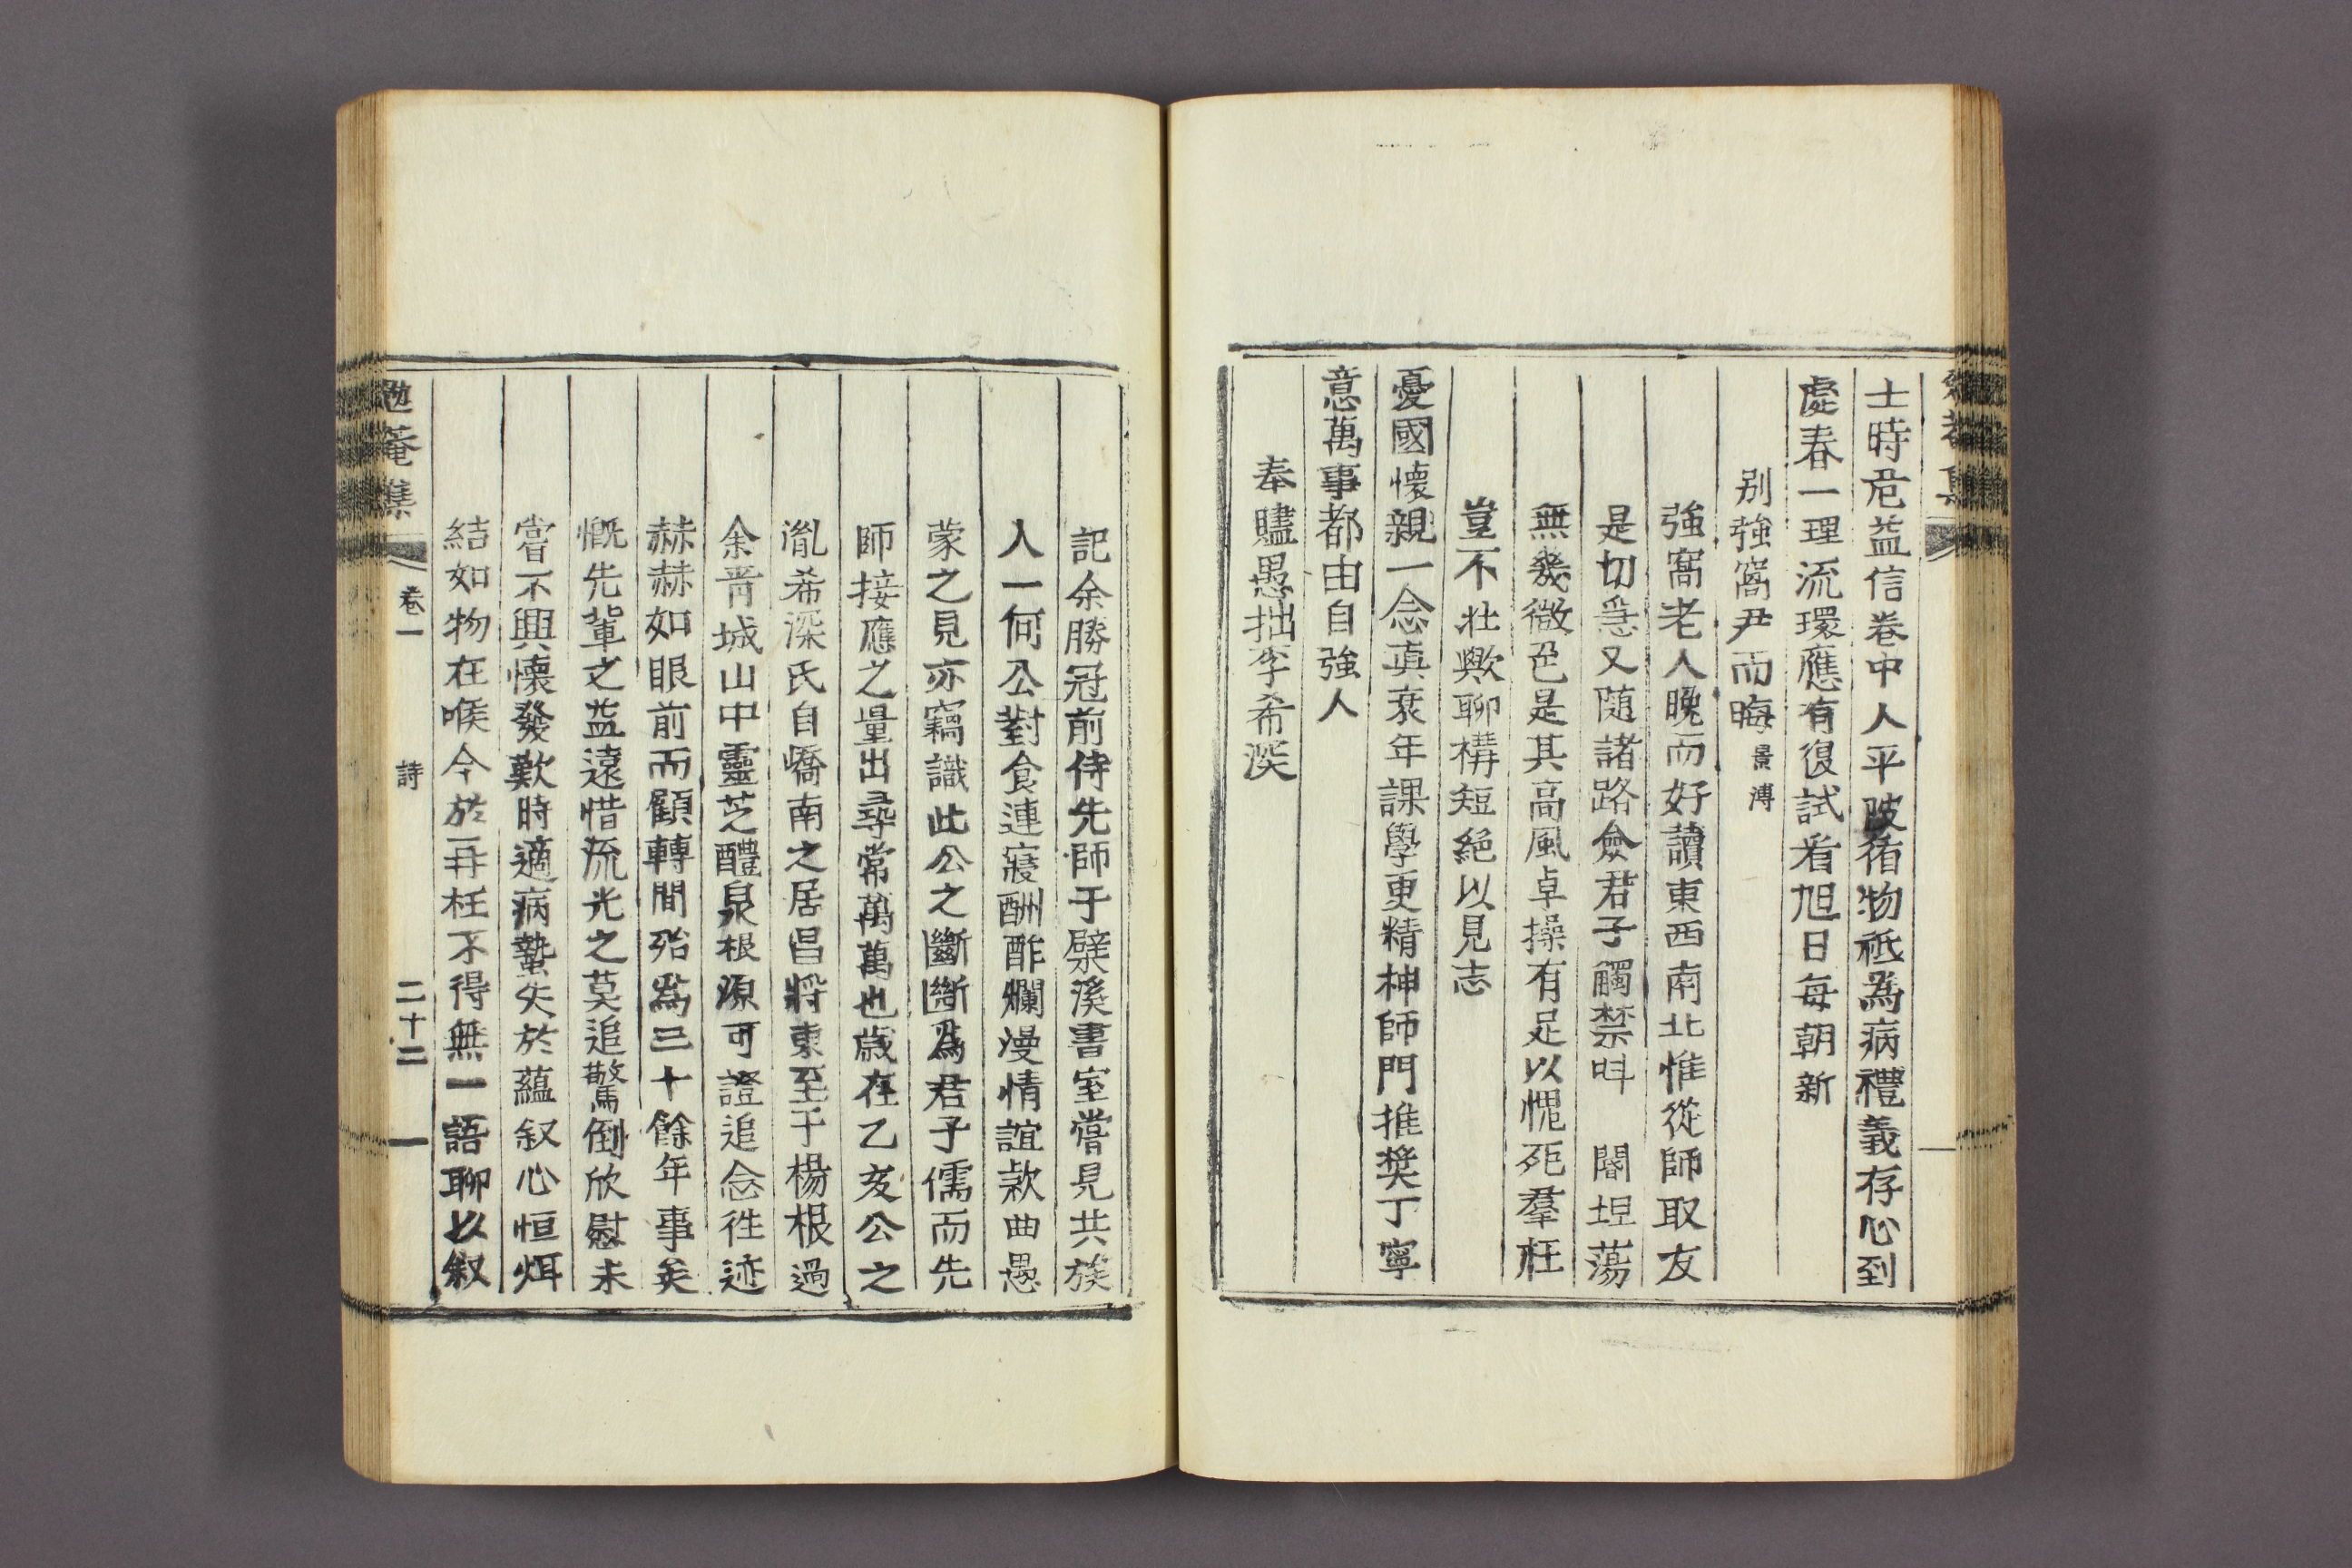 士時危益信卷中人平陂循物祗為病禮義存心到
處春一理流環應有復試看旭日每朝新
別強窩尹而晦景溥
強窩老人晚而好讀東西南北惟從師取友
是切急又隨諸路僉君子觸禁叫 閽坦蕩
無幾微色是其高風卓操有足以愧死羣枉
豈不壯歟聊構短絕以見志
憂國懷親一念真衰年課學更精神師門推奬丁寧
意萬事都由自強人
奉贐愚拙李希深
記余勝冠前侍先師于檗溪書室嘗見共族
人一何公對食連寢酬酢爛漫情誼款曲愚
蒙之見亦竊識此公之斷斷為君子儒而先
師接應之量出尋常萬萬也歲在乙亥公之
胤希深氏自嶠南之居昌將東至于楊根過
余青城山中靈芝醴泉根源可證追念徃迹
赫赫如眼前而顧轉間殆為三十餘年事矣
慨先輩之益遠惜流光之莫追驚倒欣慰未
嘗不興懷發歎時適病蟄失於蘊叙心恒烱
結如物在喉今於再枉不得無一語聊以叙
勉菴集 卷一 詩 二十二